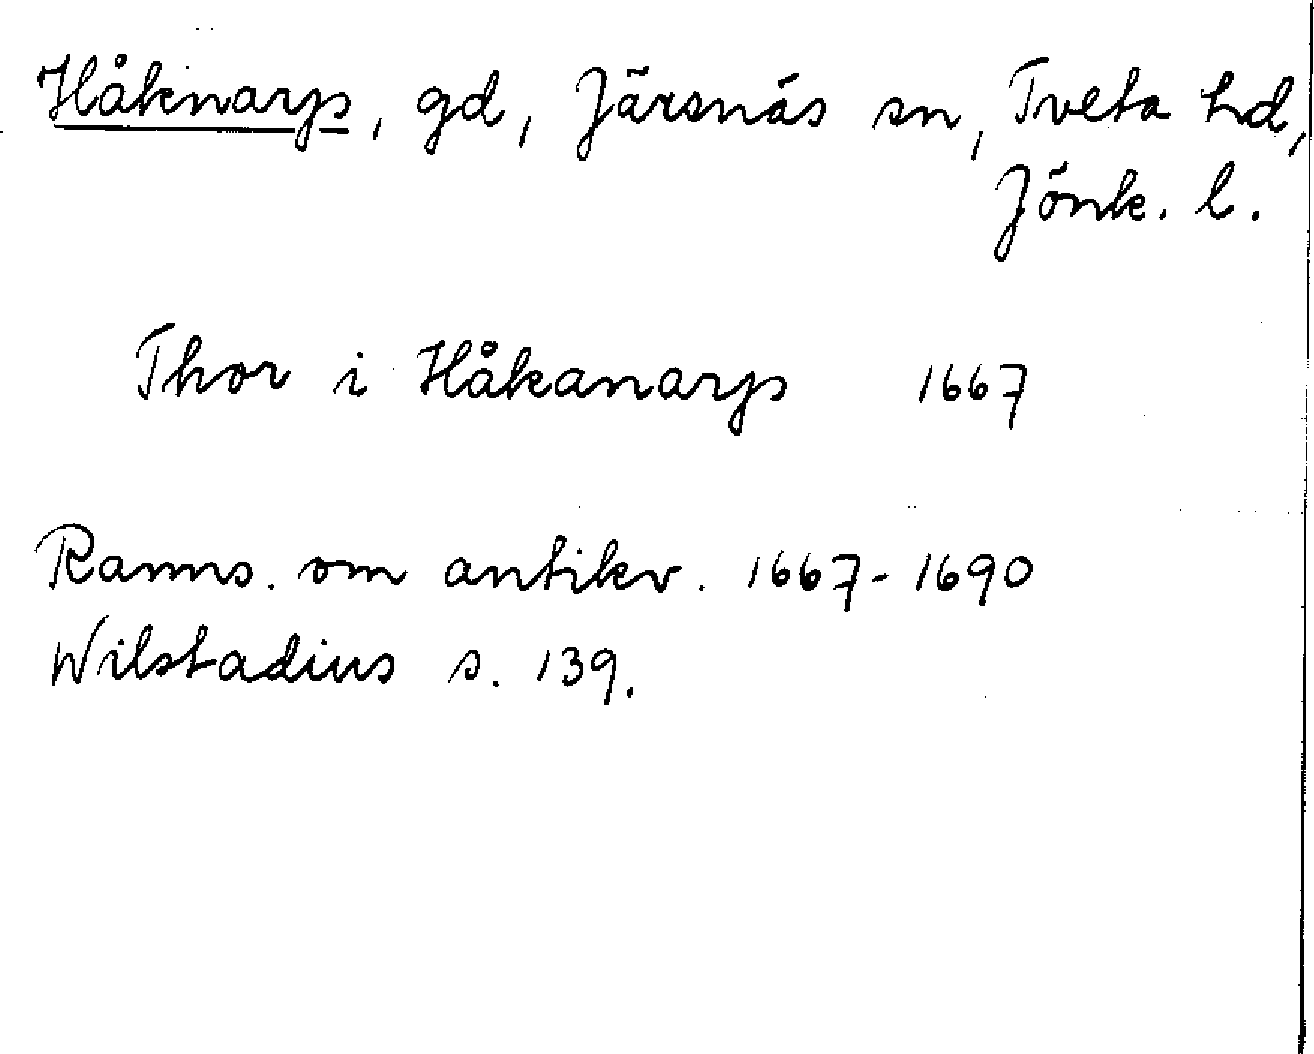 Håknarp, gd, Järsnäs sn, Tveta hd,
Jönk. l.
Thor i Håkanarp 1667
Ranns. om antikv. 1667-1690
Wilstadius s. 139.